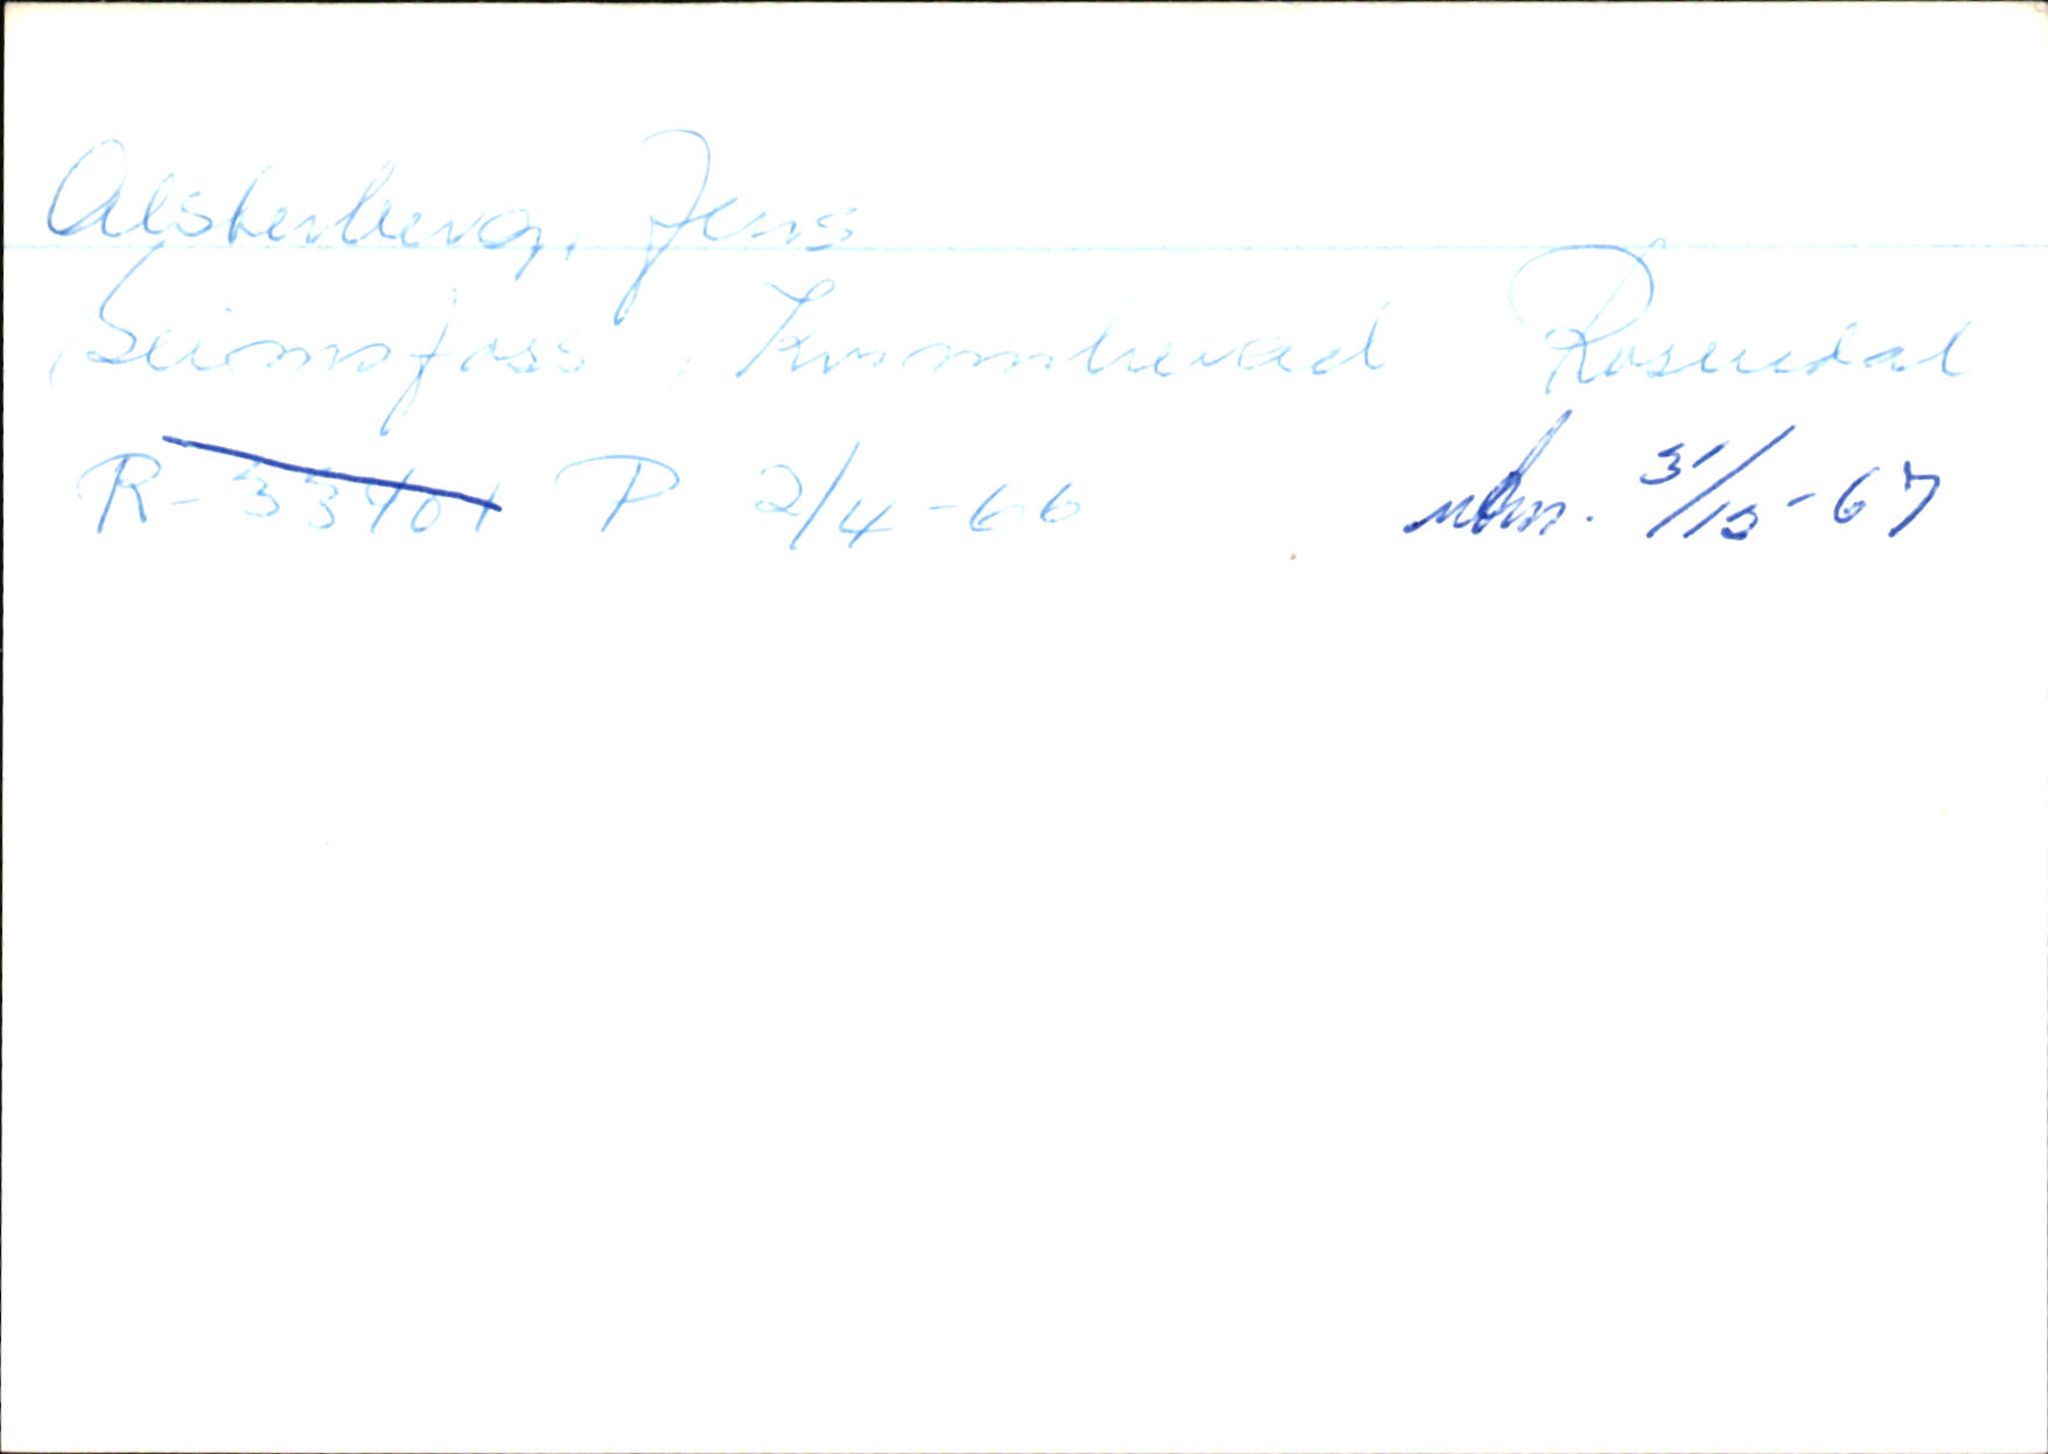 Alsterberg, Jens
Seimsfoss, Kvinnherad Rosendal
R-33401 P 2/4-66 31/12-67